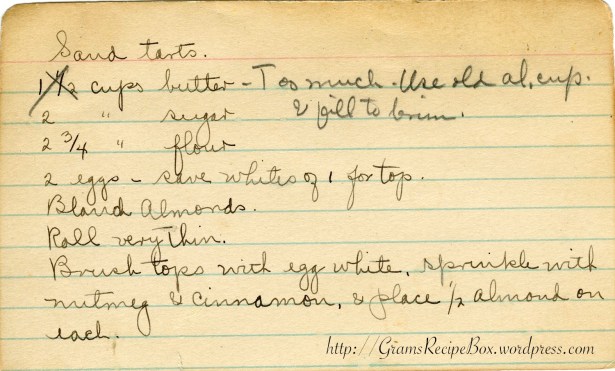 Sand tarts.
1 1/2 cups butter - Too much. Use old al. cup.
2 " sugar & fill to brim.
2 3/4 " flour
2 eggs - save whites of 1 for top.
Bland Almonds.
Roll very thin.
Brush tops with egg white, sprinkle with
nutmeg & cinnamon, & place 1/2 almond on
each.
http://GramsRecipeBox.wordpress.com